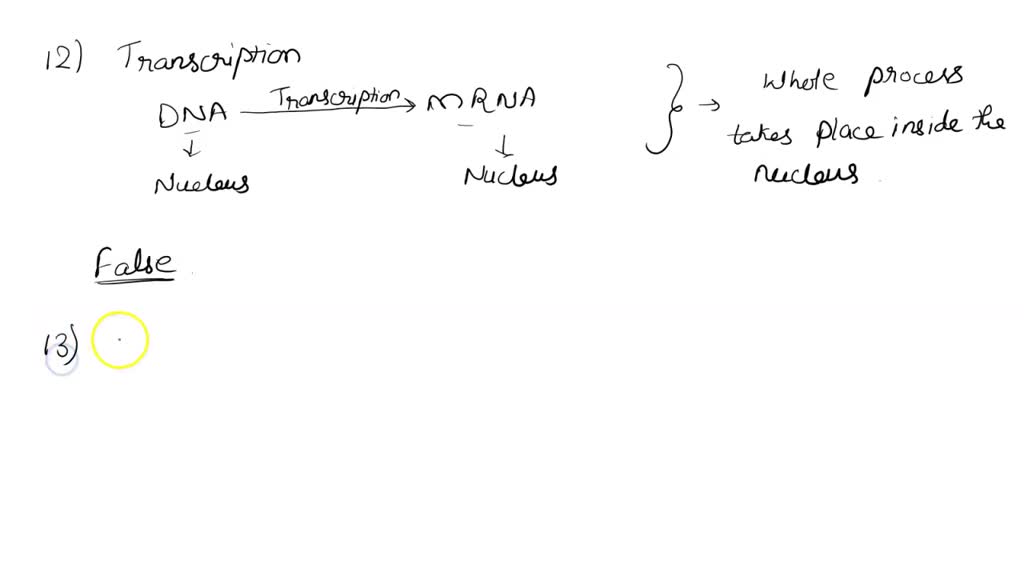 12) Transcription
DNA Transcription → mRNA } → Whole process
takes place inside the
↓ ↓
Nucleus Nucleus nucleus.
False.
13)